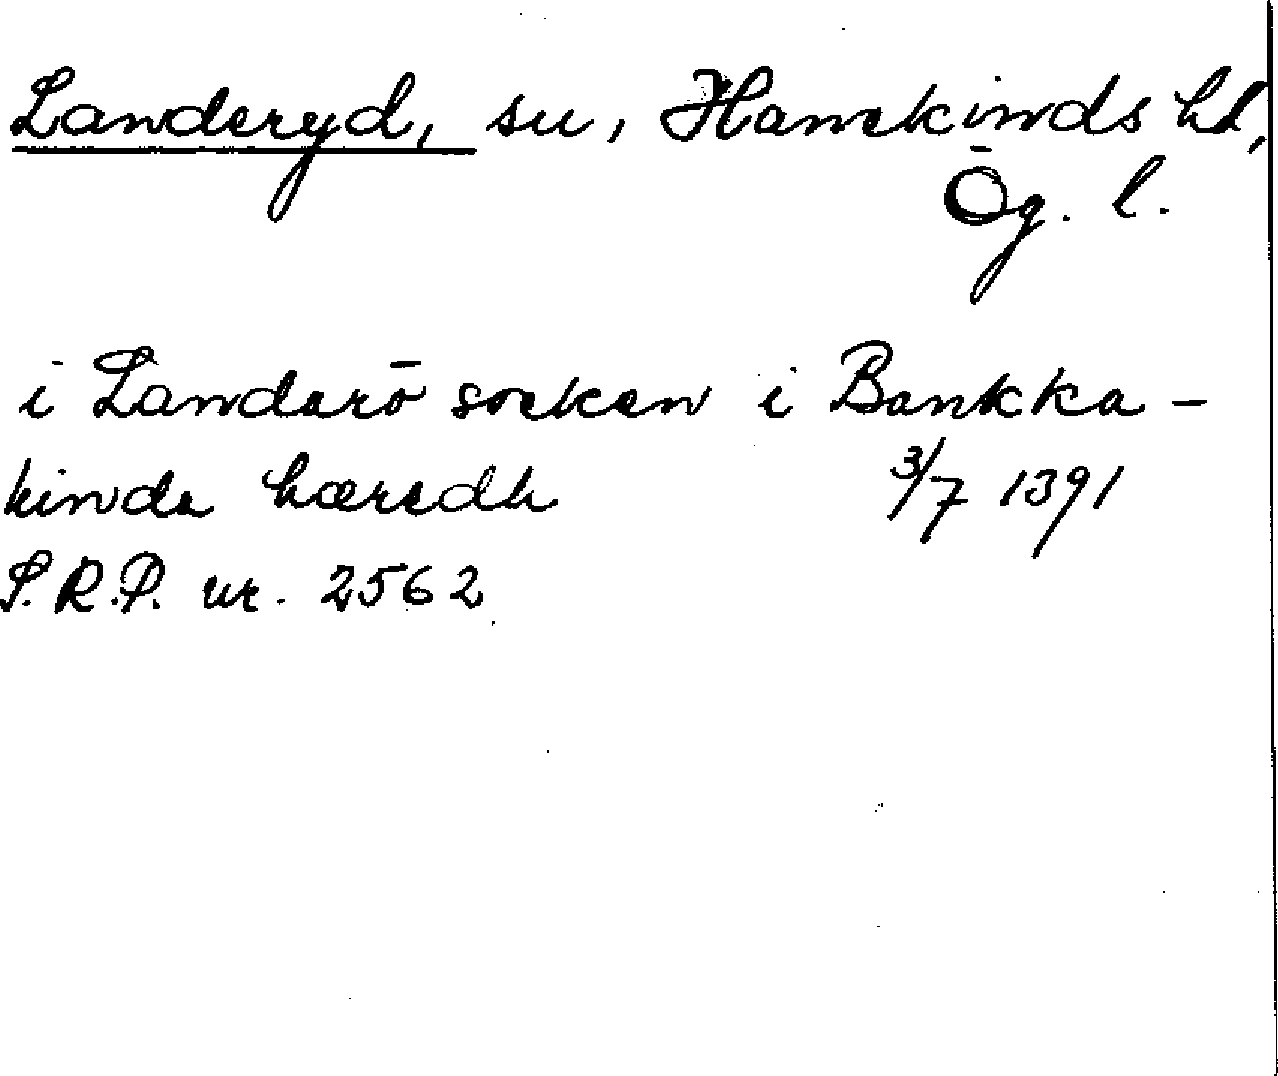 Landeryd, sn, Hanekinds hd,
Ög. l.
i Landarö socken i Bankka-
kinda hæredh 3/7 1391
S.R.P. nr. 2562